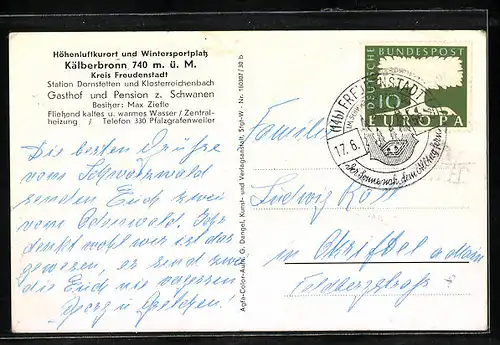 Höhenluftkurort und Wintersportplatz
Kälberbronn 740 m. ü. M.
Kreis Freudenstadt
Station Dornstetten und Klosterreichenbach
Gasthof und Pension z. Schwanen
Besitzer: Max Ziefle
Fließend kaltes u. warmes Wasser / Zentral-
heizung / Telefon 330 Pfalzgrafenweiler
Die besten Grüße
vom Schwarzwald
senden Euch zwei
vom Odenwald. Ihr
denkt wohl wir ist das
gewesen, es send zwei
die Euch nie vergessen
Georg u. Gretchen!
Agfa-Color-Aufn. G. Dangel, Kunst- und Verlagsanstalt, Stgt-W - Nr. 160107/30 b
DEUTSCHE BUNDESPOST
10
EUROPA
FREUDENSTADT
17.6.
Familie
Ludwig
in
Feldbergstraße